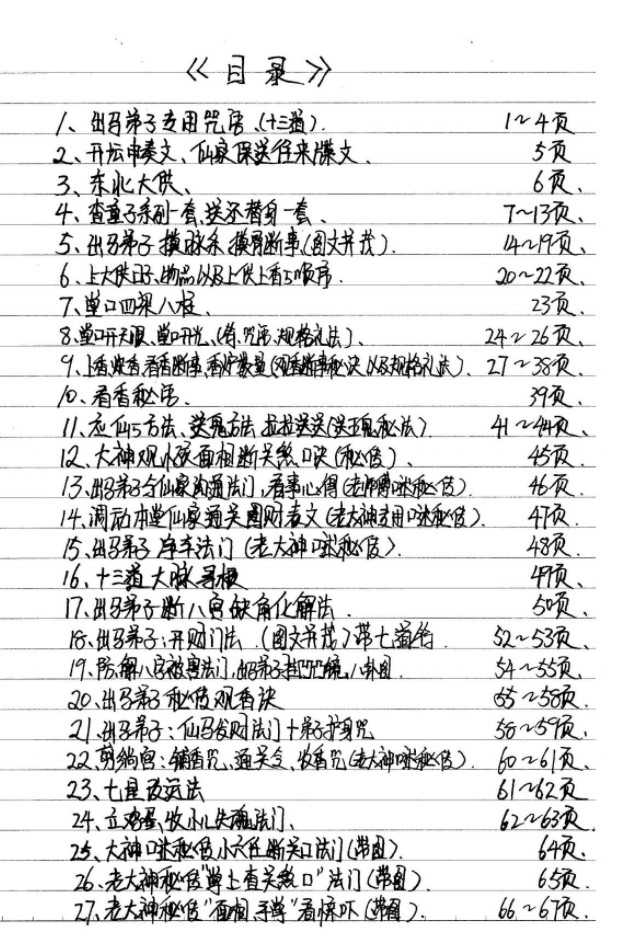 《目录》
1、出马弟子专用咒语、(十三道). 1~4页
2、开坛申奏文、仙家保送往来牒文、 5页
3、东北大供、 6页、
4、查童子系列一套、送还替身一套、 7~13页、
5、出马弟子摸脉条摸骨断事(图文并茂). 14~19页、
6、上大供日子、物品以及上供上香与顺序. 20~22页、
7、堂口四梁八柱、 23页、
8、堂口开天眼、堂口开光、(符、咒语、规格礼法)、 24~26页、
9、上香、焚香、看香断事、香炉数量(观香断事秘诀以及规格礼法)、 27~38页、
10、看香秘语、 39页、
11、应仙与方法、送鬼方法 (送鬼秘法) 41~44页、
12、大神观小孩面相断关煞口诀(秘传)、 45页、
13、出马弟子与仙家沟通法门,看事心得(老师傅口述秘传). 46页、
14、调动本堂仙家通关圆财表文(老大神专用口述秘传)、 47页、
15、出马弟子净车法门(老大神口述秘传). 48页、
16、十三道大脉寻根 49页、
17、出马弟子断八宫缺角化解法. 50页、
18、出马弟子:开财门法、(图文并茂)带七道符、 52~53页、
19、防、解八字被害法门,出马弟子 八卦图 54~55页、
20、出马弟子秘传观香诀 55~58页、
21、出马弟子:仙马发财法门十弟子护身咒 58~59页、
22、 铺香咒、通关文、收香咒(老大神口述秘传)、 60~61页、
23、七星改运法 61~62页
24、立鸡蛋、收小儿失魂法门、 62~63页
25、大神口述秘传小六任断关口法门(带图)、 64页、
26、老大神秘传"掌上查关煞口"法门(带图)、 65页、
27、老大神秘传"面相、手掌"看惊吓(带图)、 66~67页、